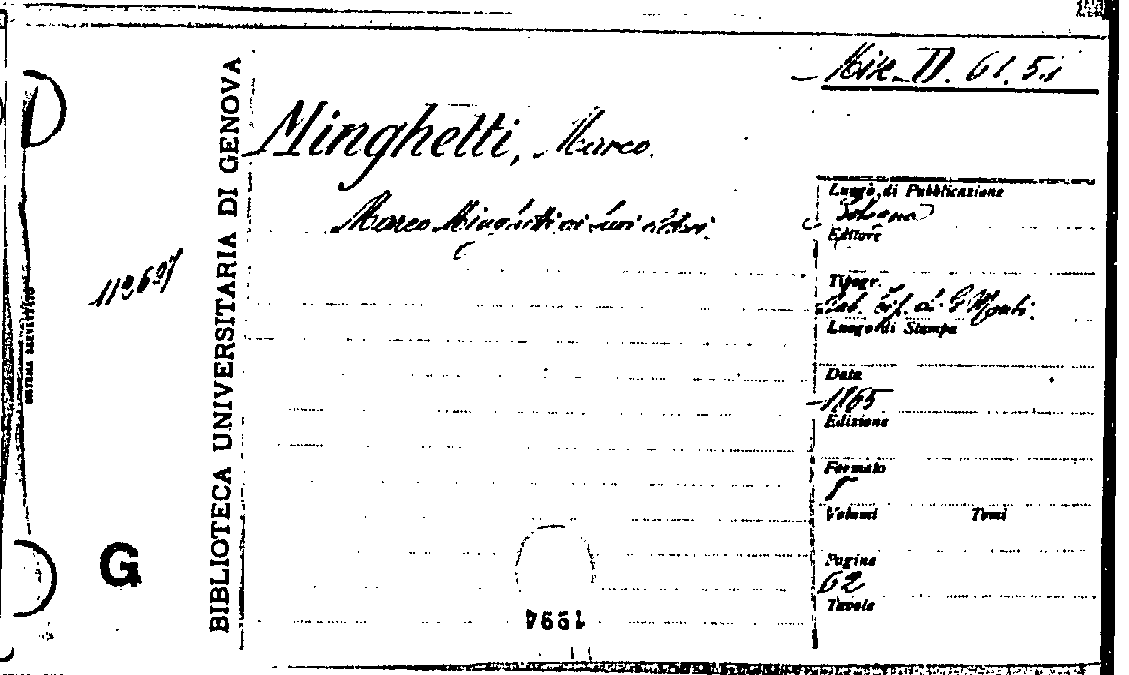 Misc. D. 61. 51
Minghetti, Marco.
Marco Minghetti ai suoi elettori.
112697
SISTEMA BREVETTATO
BIBLIOTECA UNIVERSITARIA DI GENOVA
G
1994
Luogo di Pubblicazione
Bologna
Editore
Tipogr.
Stab. tip. di G. Monti.
Luogo di Stampa
Data
1865
Edizione
Formato
8
Volumi Tomi
Pagine
62
Tavole